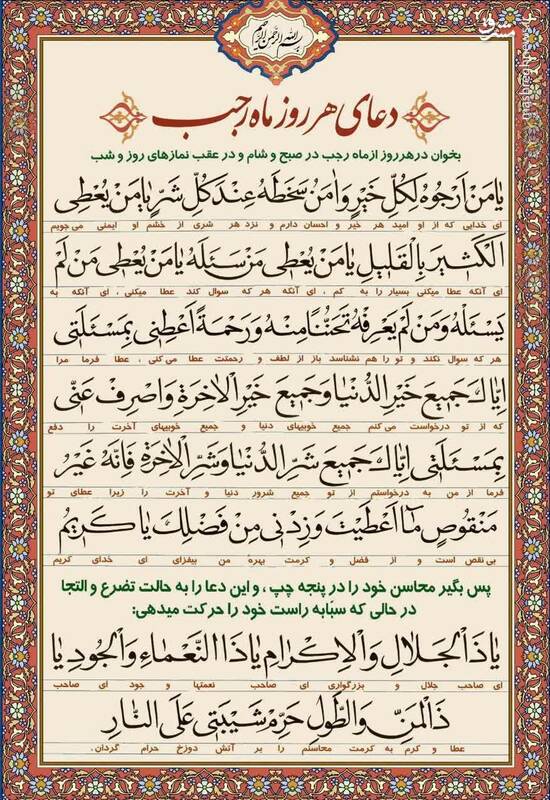 بسم الله الرحمن الرحیم
مشرق
mashreghnews.ir
دعای هر روز ماه رجب
بخوان در هر روز از ماه رجب در صبح و شام و در عقب نمازهای روز و شب
یا مَنْ اَرْجُوهُ لِکُلِّ خَیْرٍ وَ امَنُ سَخَطَهُ عِنْدَ کُلِّ شَرٍّ یا مَنْ یُعْطِی
ای خدایی که از او امید هر خیر و احسان دارم و نزد هر شری از خشم او ایمنی می جویم
الْکَثیرَ بِالْقَلیلِ یا مَنْ یُعْطی مَنْ سَئَلَهُ یا مَنْ یُعْطی مَنْ لَمْ
ای آنکه عطا میکنی بسیار را به کم ، ای آنکه هر که سوال کند عطا میکنی ، ای آنکه به
یَسْئَلْهُ وَ مَنْ لَمْ یَعْرِفْهُ تَحَنُّناً مِنْهُ وَ رَحْمَةً اَعْطِنی بِمَسْئَلَتی
هر که سوال نکند و تو را هم نشناسد باز از لطف و رحمتت عطا می کنی ، عطا فرما مرا
اِیّاکَ جَمیعَ خَیْرِ الدُّنْیا وَ جَمیعَ خَیْرِ الْاخِرَةِ وَ اصْرِفْ عَنّی
که از تو درخواست می کنم جمیع خوبیهای دنیا و جمیع خوبیهای آخرت را دفع
بِمَسْئَلَتی اِیّاکَ جَمیعَ شَرِّ الدُّنْیا وَ شَرِّ الْاخِرَةِ فَاِنَّهُ غَیْرُ
فرما از من به درخواستم از تو جمیع شرور دنیا و آخرت را زیرا عطای تو
مَنْقُوصٍ ما اَعْطَیْتَ وَ زِدْنی مِنْ فَضْلِکَ یا کَریمُ
بی نقص است و از فضل و کرمت بهره من بیفزای ای خدای کریم
پس بگیر محاسن خود را در پنجه چپ ، و این دعا را به حالت تضرع و التجا
در حالی که سبّابه راست خود را حرکت میدهی:
یا ذَا الْجَلالِ وَ الْاِکْرامِ یا ذَا النَّعْماءِ وَ الْجُودِ یا
ای صاحب جلال و بزرگواری ای صاحب نعمتها و جود ای صاحب
ذَا الْمَنِّ وَ الطَّوْلِ حَرِّمْ شَیْبَتی عَلَی النّارِ
عطا و کرم به کرمت محاسنم را بر آتش دوزخ حرام گردان.